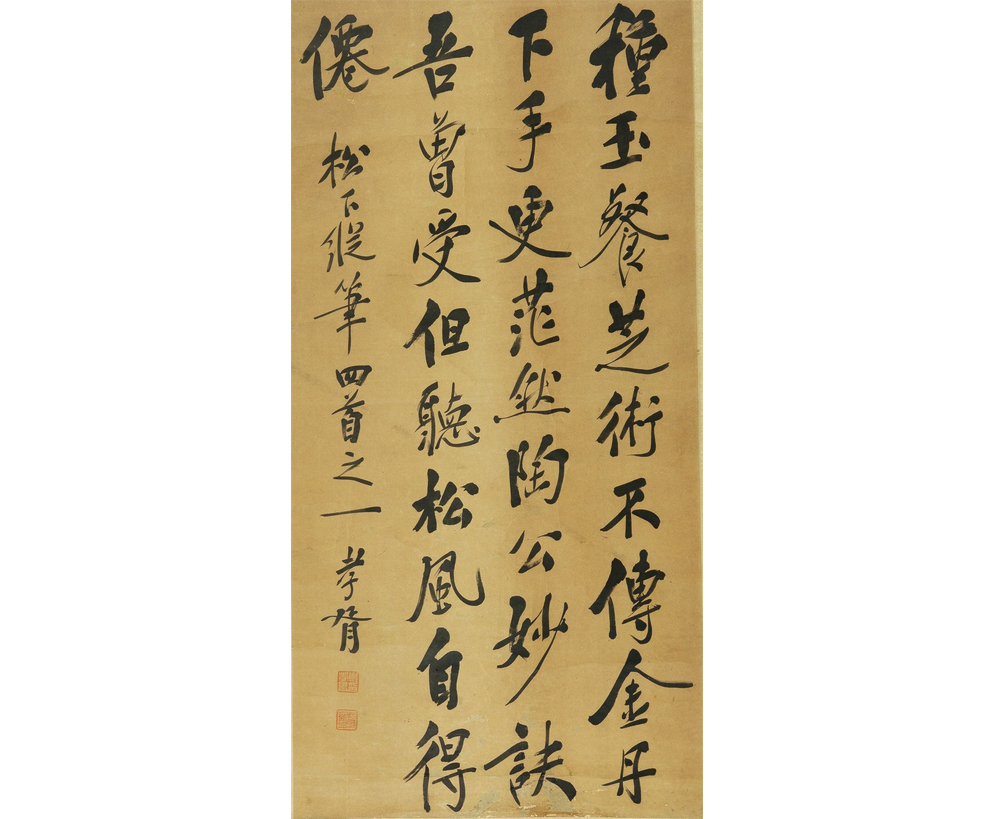 種玉餐芝術不傳金丹
下手更茫然陶公妙訣
吾曾受但聽松風自得
僊
松下縱筆四首之一 孝胥